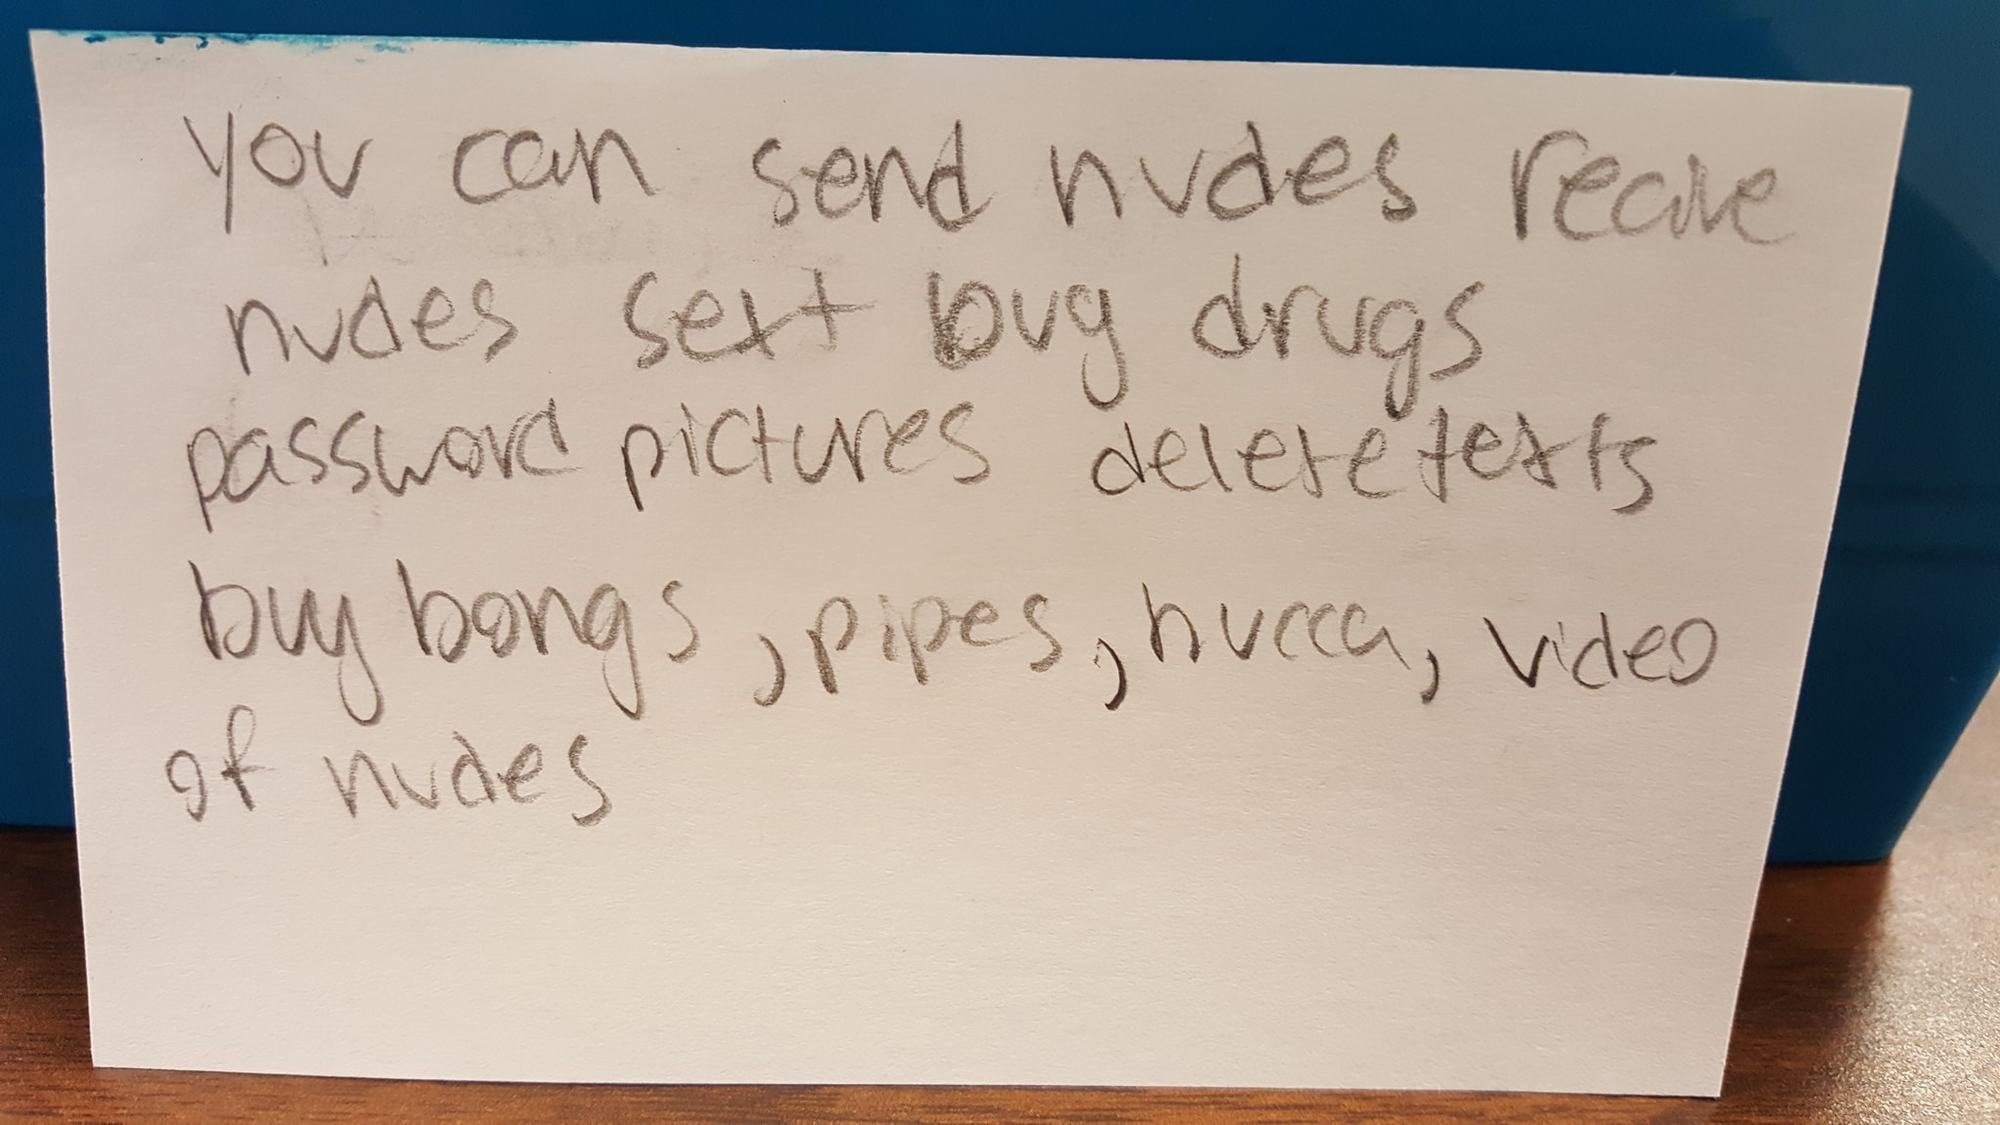 you can send nudes recive
nudes sext bug drugs
password pictures delete texts
buy bongs, pipes, hucca, video
of nudes